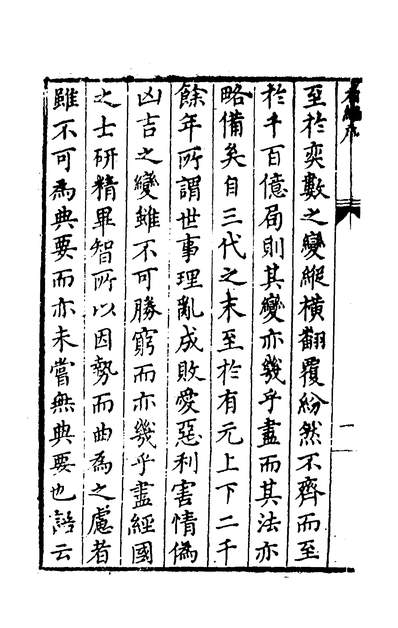 右編序
至於奕數之變縱橫翻覆紛然不齊而至
於千百億局則其變亦幾乎盡而其法亦
略備矣自三代之末至於有元上下二千
餘年所謂世事理亂成敗愛惡利害情偽
凶吉之變雖不可勝窮而亦幾乎盡經國
之士研精畢智所以因勢而曲為之慮者
雖不可為典要而亦未嘗無典要也語云
一